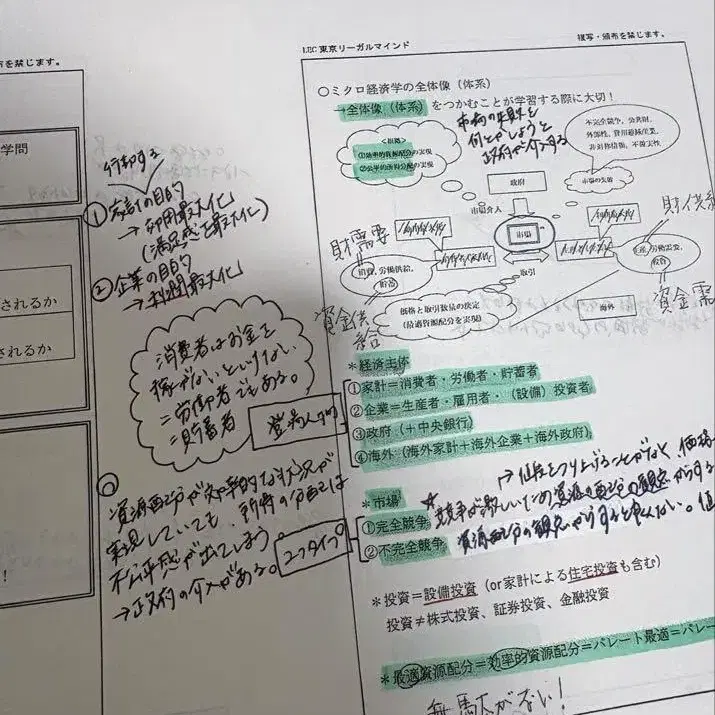 布を禁じます。
学問
されるか
されるか
！
行動する
① 家計の目的
→ 効用最大化
(満足感を最大化)
② 企業の目的
→ 利潤最大化
消費者はお金を
稼がないといけない
＝労働者でもある。
＝貯蓄者
登場人物
資源配分が効率的な状況が
実現していても、所得の分配には
不公平感が出てしまう。
→政府の介入がある。
2つタイプ
LEC東京リーガルマインド
複写・頒布を禁じます。
○ミクロ経済学の全体像（体系）
→全体像（体系）をつかむことが学習する際に大切！
市場の失敗を
何とかしようと
政府が介入する
<組織>
①効率的資源配分の実現
②公平的所得分配の実現
不完全競争，公共財，
外部性，費用逓減産業，
非対称情報，不確実性
市場の失敗
政府
市場介入
市場
取引
財需要
消費，労働供給，
貯蓄
資金供給
財供給
生産，労働需要，
投資
資金需
価格と取引数量の決定
(最適資源配分を実現)
海外
＊経済主体
①家計＝消費者・労働者・貯蓄者
②企業＝生産者・雇用者・（設備）投資者
③政府（＋中央銀行）
④海外（海外家計＋海外企業＋海外政府）
＊市場
①完全競争
②不完全競争
→価格をつり上げることがなく、価格
競争が激しいため資源配分の観点からする
資源配分の観点からすると良くない。値
＊投資＝設備投資（or家計による住宅投資も含む）
投資≠株式投資、証券投資、金融投資
＊最適資源配分＝効率的資源配分＝パレート最適＝パレー
無駄がない！